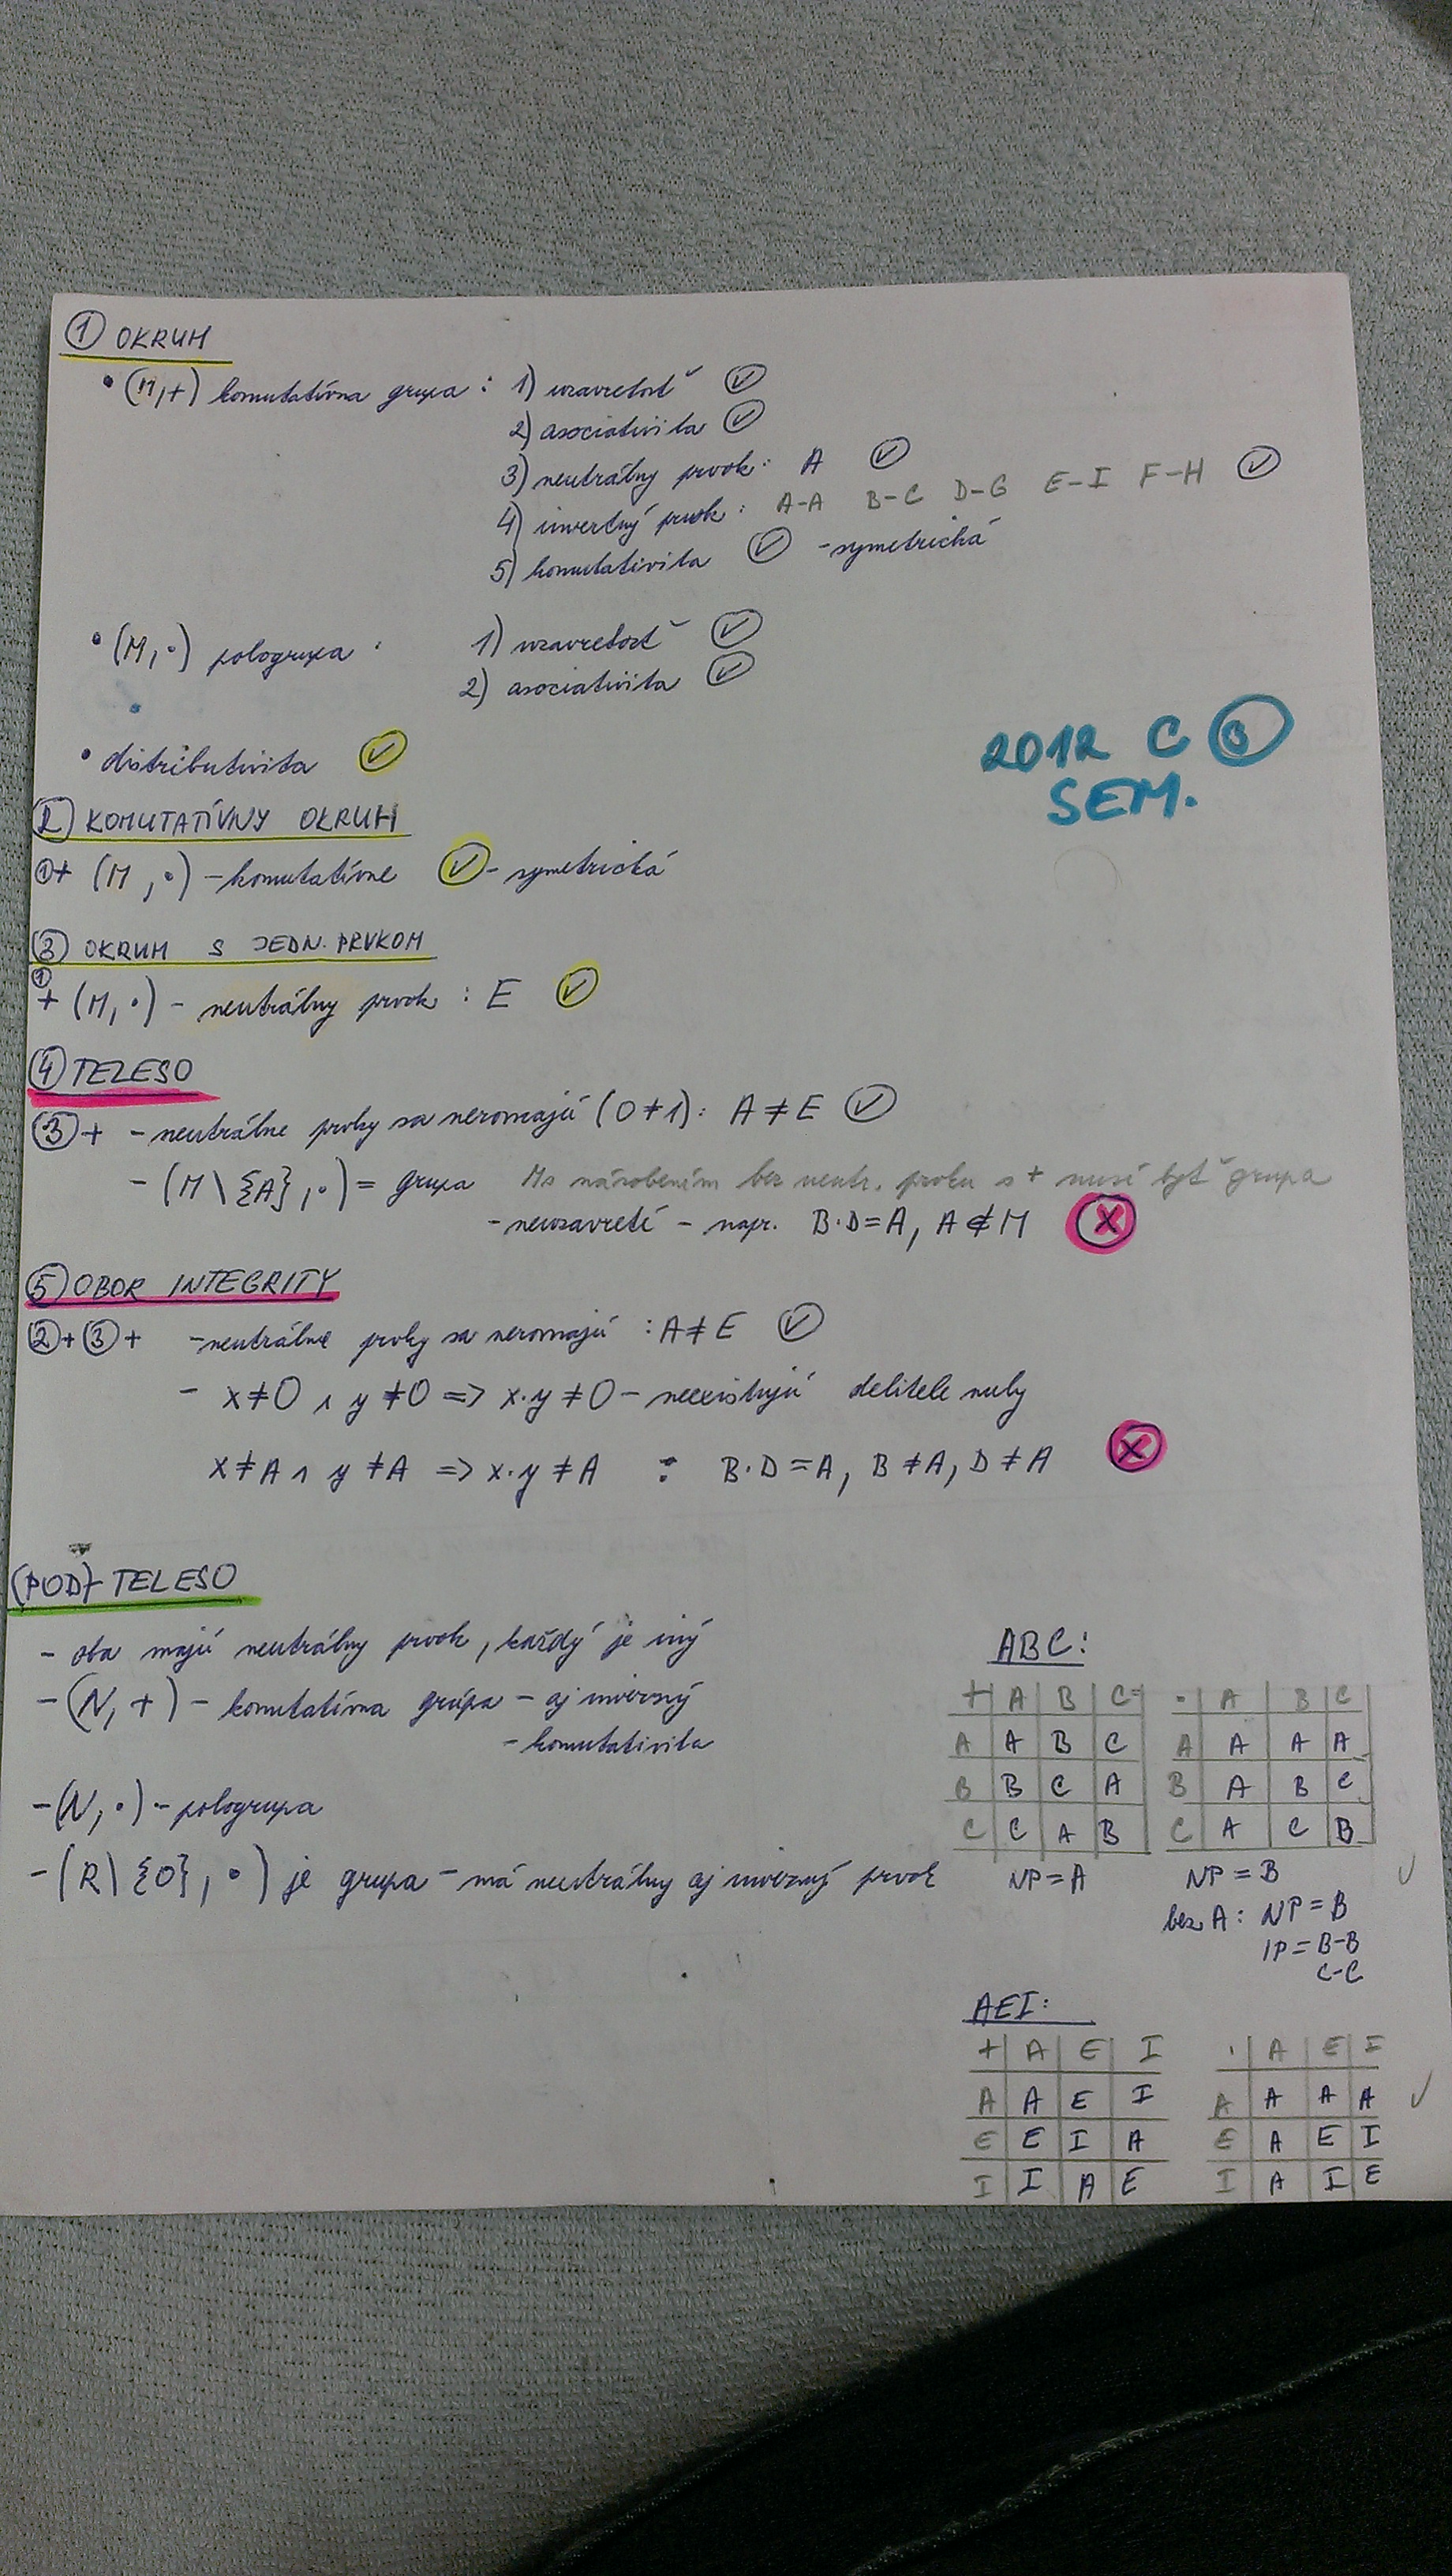 ① OKRUH
• (M,+) komutatívna grupa : 1) uzavretosť ✓
2) asociativita ✓
3) neutrálny prvok: A ✓
4) inverzný prvok: A-A B-C D-G E-I F-H ✓
5) komutativita ✓ - symetrická
• (M,·) pologrupa : 1) uzavretosť ✓
2) asociativita ✓
• distributivita ✓
2012 C ⑧
SEM.
② KOMUTATÍVNY OKRUH
①+ (M,·) - komutatívne ✓ - symetrická
③ OKRUH S JEDN. PRVKOM
①+ (M,·) - neutrálny prvok : E ✓
④ TELESO
③+ - neutrálne prvky sa nerovnajú (0≠1): A≠E ✓
- (M\{A},·) = grupa M s násobením bez neutr. prvku s + musí byť grupa
- neuzavreté - napr. B·D=A, A∉M X
⑤ OBOR INTEGRITY
②+③+ - neutrálne prvky sa nerovnajú : A≠E ✓
- x≠0 ∧ y≠0 => x·y≠0 - neexistujú delitele nuly
x≠A ∧ y≠A => x·y≠A : B·D=A, B≠A, D≠A X
(POD)-TELESO
- oba majú neutrálny prvok, každý je iný
- (N,+) - komutatívna grupa - aj inverzný
- komutativita
- (N,·) - pologrupa
- (R\{0},·) je grupa - má neutrálny aj inverzný prvok
ABC:
+ A B C · A B C
A A B C A A A A
B B C A B A B C
C C A B C A C B
NP=A NP=B ✓
bez A: NP=B
IP=B-B
C-C
AEI:
+ A E I · A E I
A A E I A A A A ✓
E E I A E A E I
I I A E I A I E